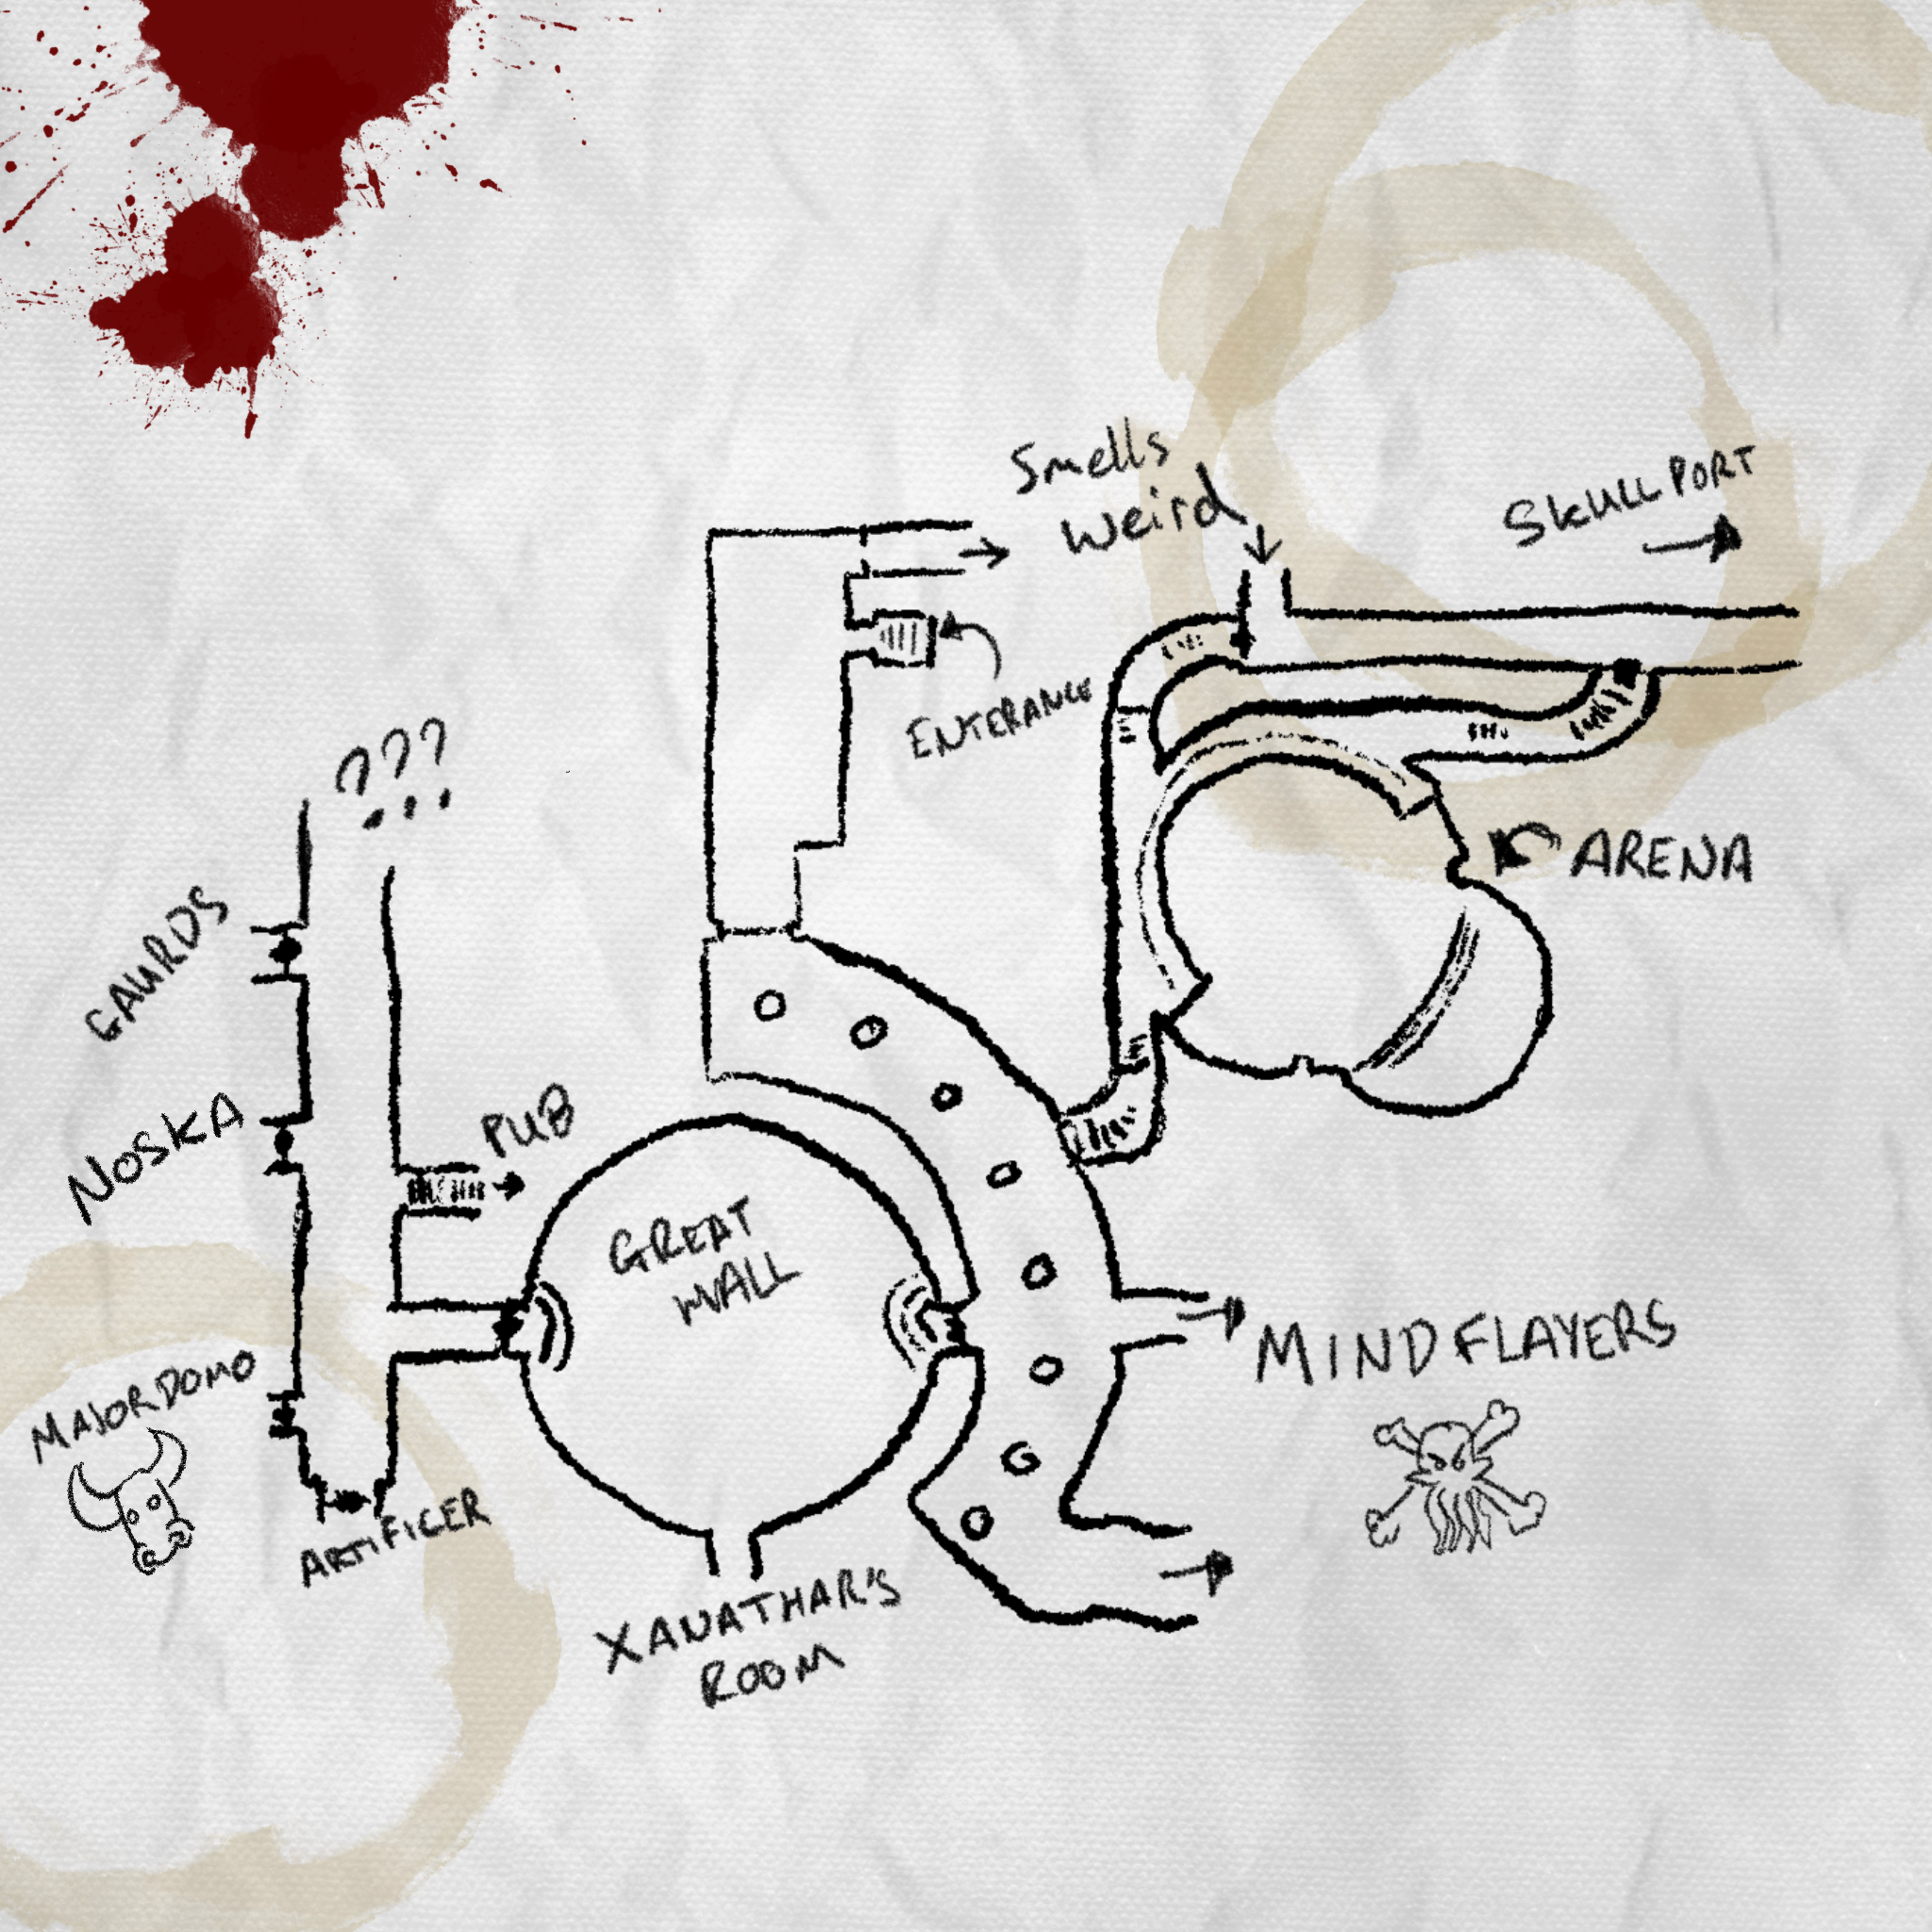 Smells
weird
SKULLPORT
ENTERANCE
???
ARENA
GAURDS
NOSKA
PUB
GREAT
WALL
MINDFLAYERS
MAJORDOMO
ARTIFICER
XANATHAR'S
ROOM